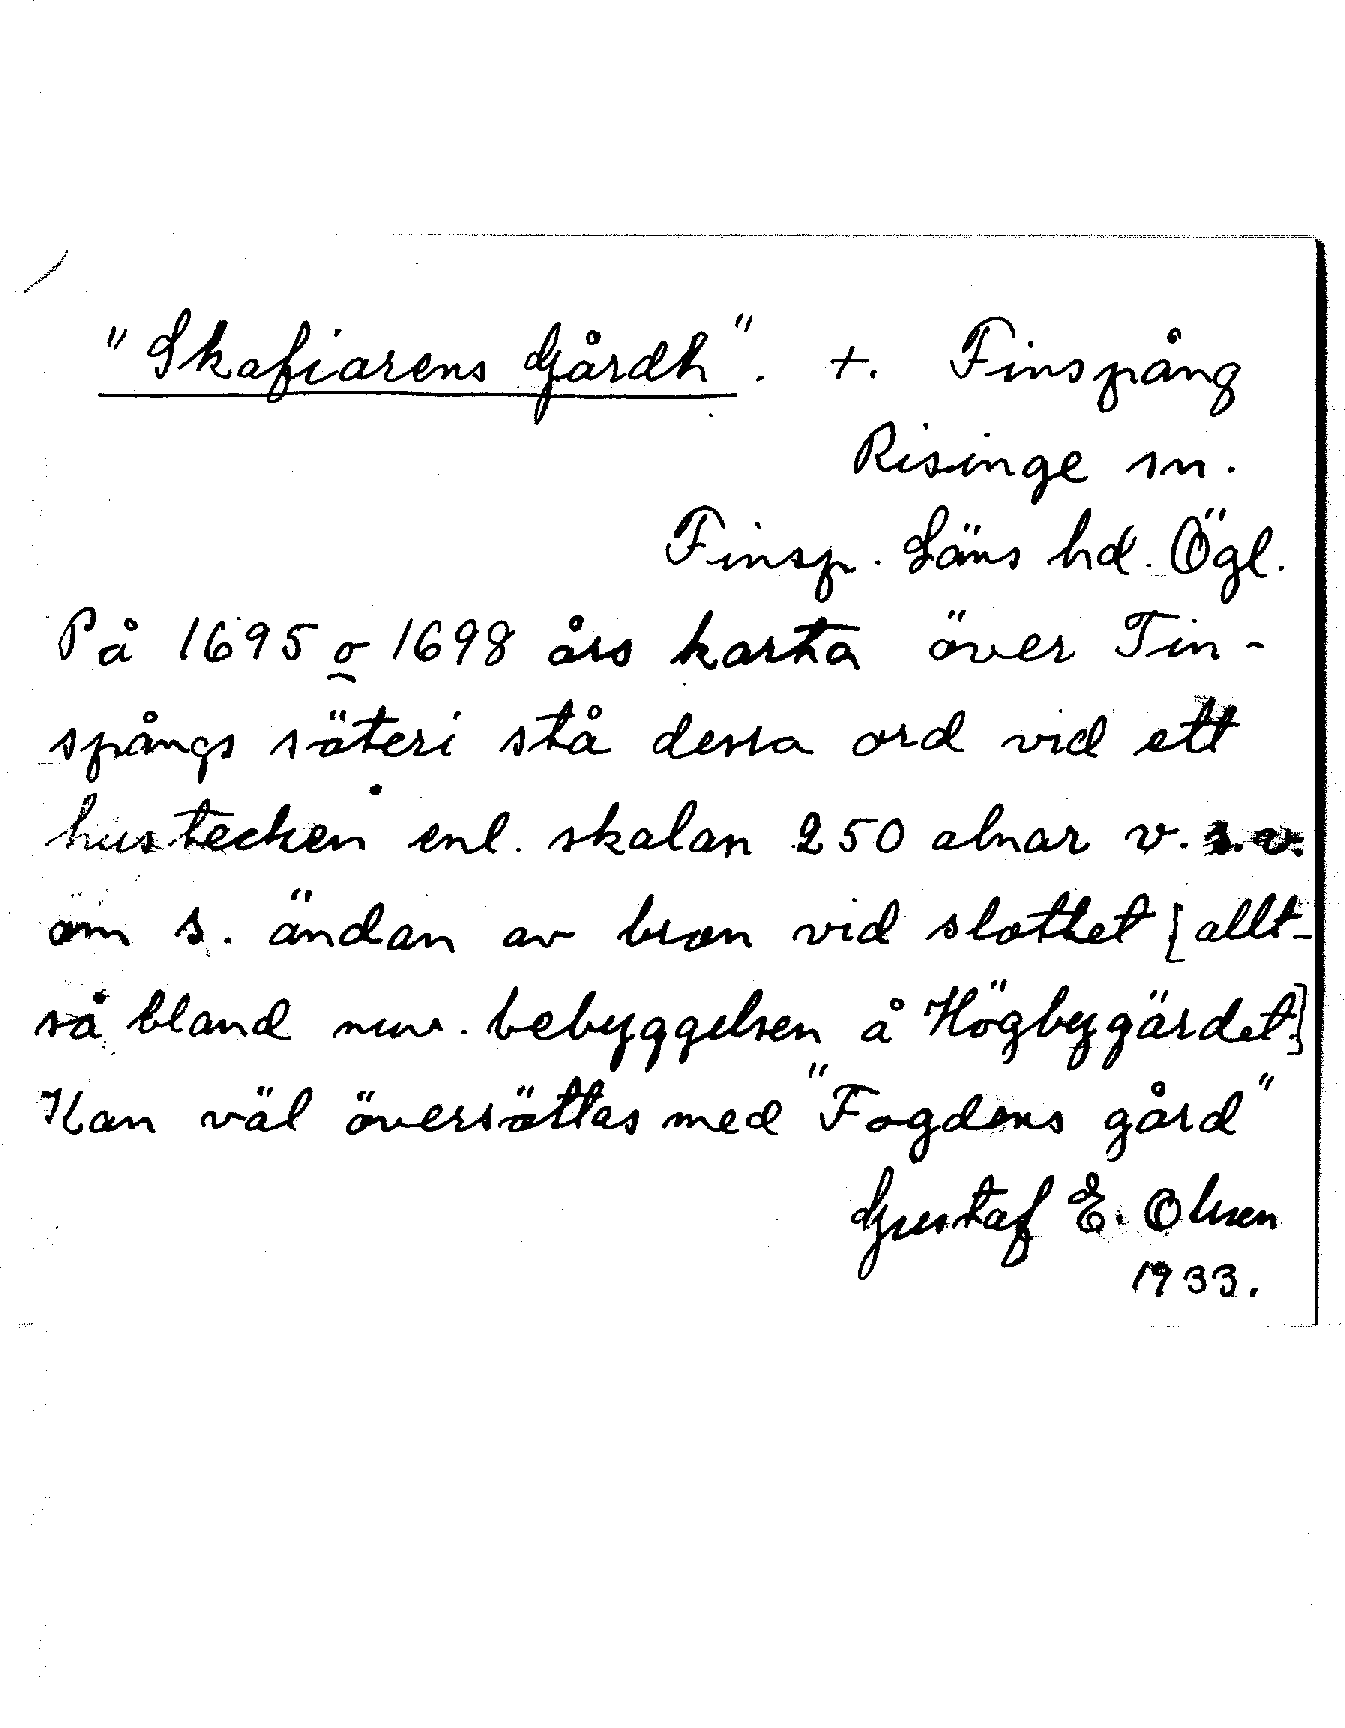 "Skafiarens Gårdh". +. Finspång
Risinge sn.
Finsp. Läns hd. Ögl.
På 1695 o 1698 års karta över Fin-
spångs säteri stå dessa ord vid ett
hustecken enl. skalan 250 alnar v.s.v.
om s. ändan av bron vid slottet [allt-
så bland nuv. bebyggelsen å Högbygärdet]
Kan väl översättas med "Fogdens gård"
Gustaf E. Olsen
1933.